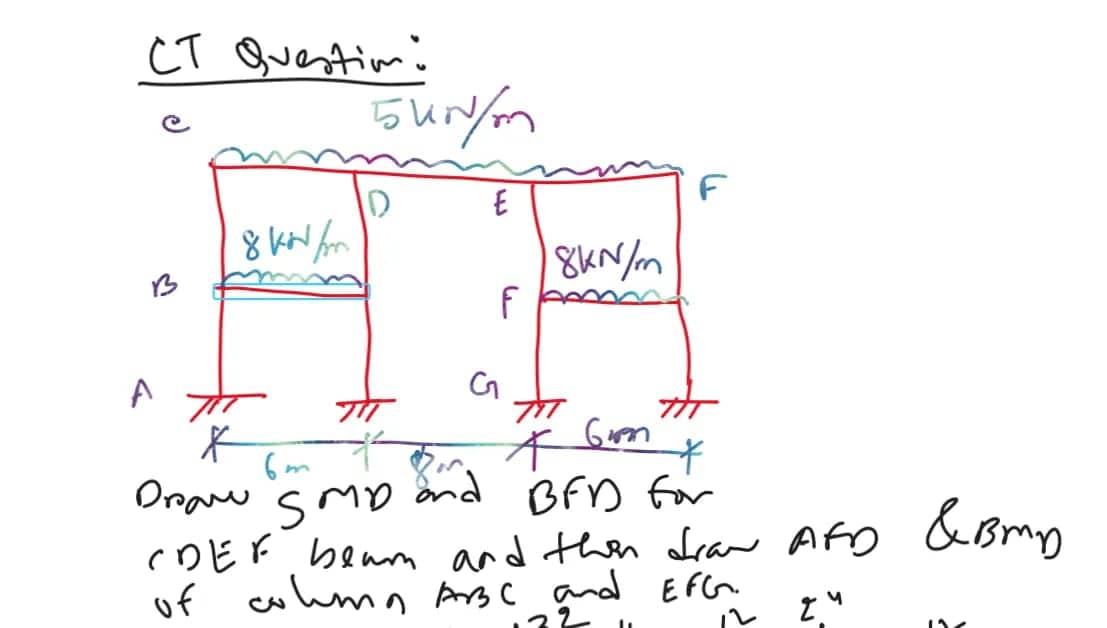 CT Question:
5kN/m
C
D
E
F
8kN/m
8kN/m
B
F
A
G
6m
8m
6m
Draw SMD and BFD for
CDEF beam and then draw AFD & BMD
of column ABC and EFG.